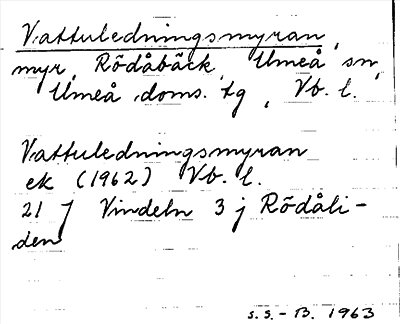 Vattuledningsmyran,
myr, Rödåbäck, Umeå sn,
Umeå doms. tg, Vb. l.
Vattuledningsmyran
ek (1962) Vb. l.
21 J Vindeln 3 j Rödåli-
den
S.S.-B. 1963